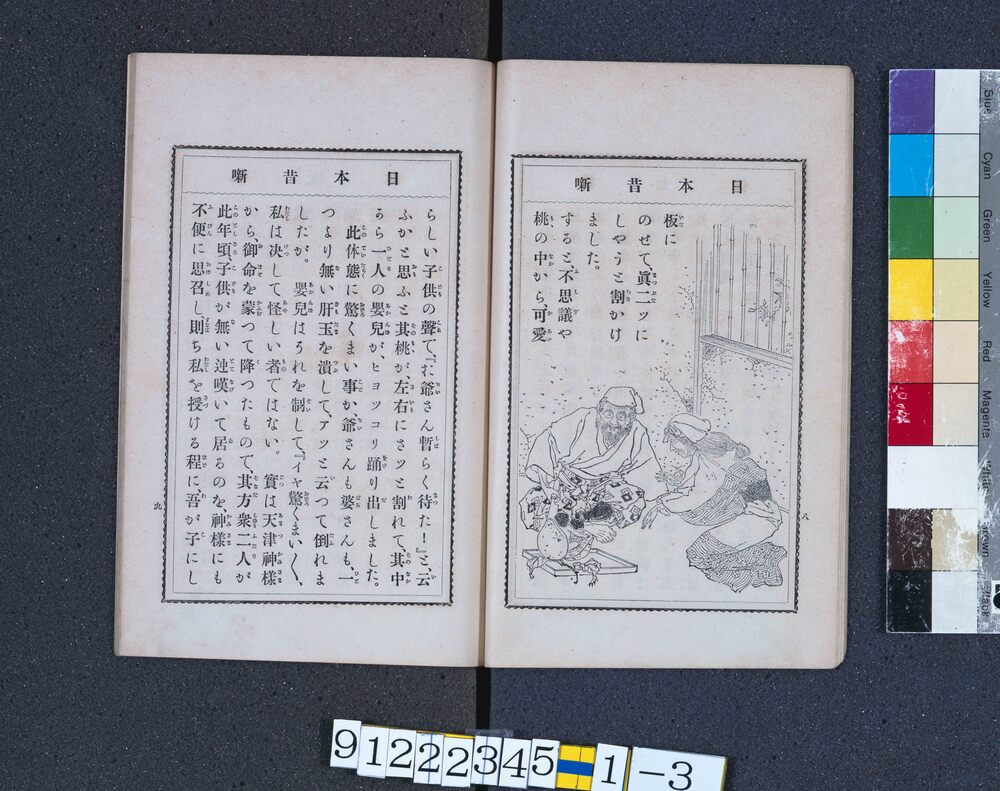 日本昔噺
板に
のせて、眞二ツに
しやうと割かけ
ました。
すると不思議や
桃の中から、可愛
八
日本昔噺
らしい子供の聲で、『お爺さん暫らく待た！』と、云
ふかと思ふと其桃が、左右にさツと割れて、其中
から一人の嬰兒が、ヒョツコリ踊り出しました。
此体態に驚くまい事か、爺さんも婆さんも、一
つより無い肝玉を潰して、アツと云つて倒れま
したが。嬰兒はそれを制して、『イヤ驚くまい〱、
私は决して怪しい者ではない。實は天津神樣
から、御命を蒙つて降つたもので、其方衆二人が
此年頃、子供が無い迚嘆いて居るのを、神樣にも
不便に思召し、則ち私を授ける程に、吾が子にし
九
Blue
Cyan
Green
Yellow
Red
Magenta
White
Brown
Black
91222345 1-3